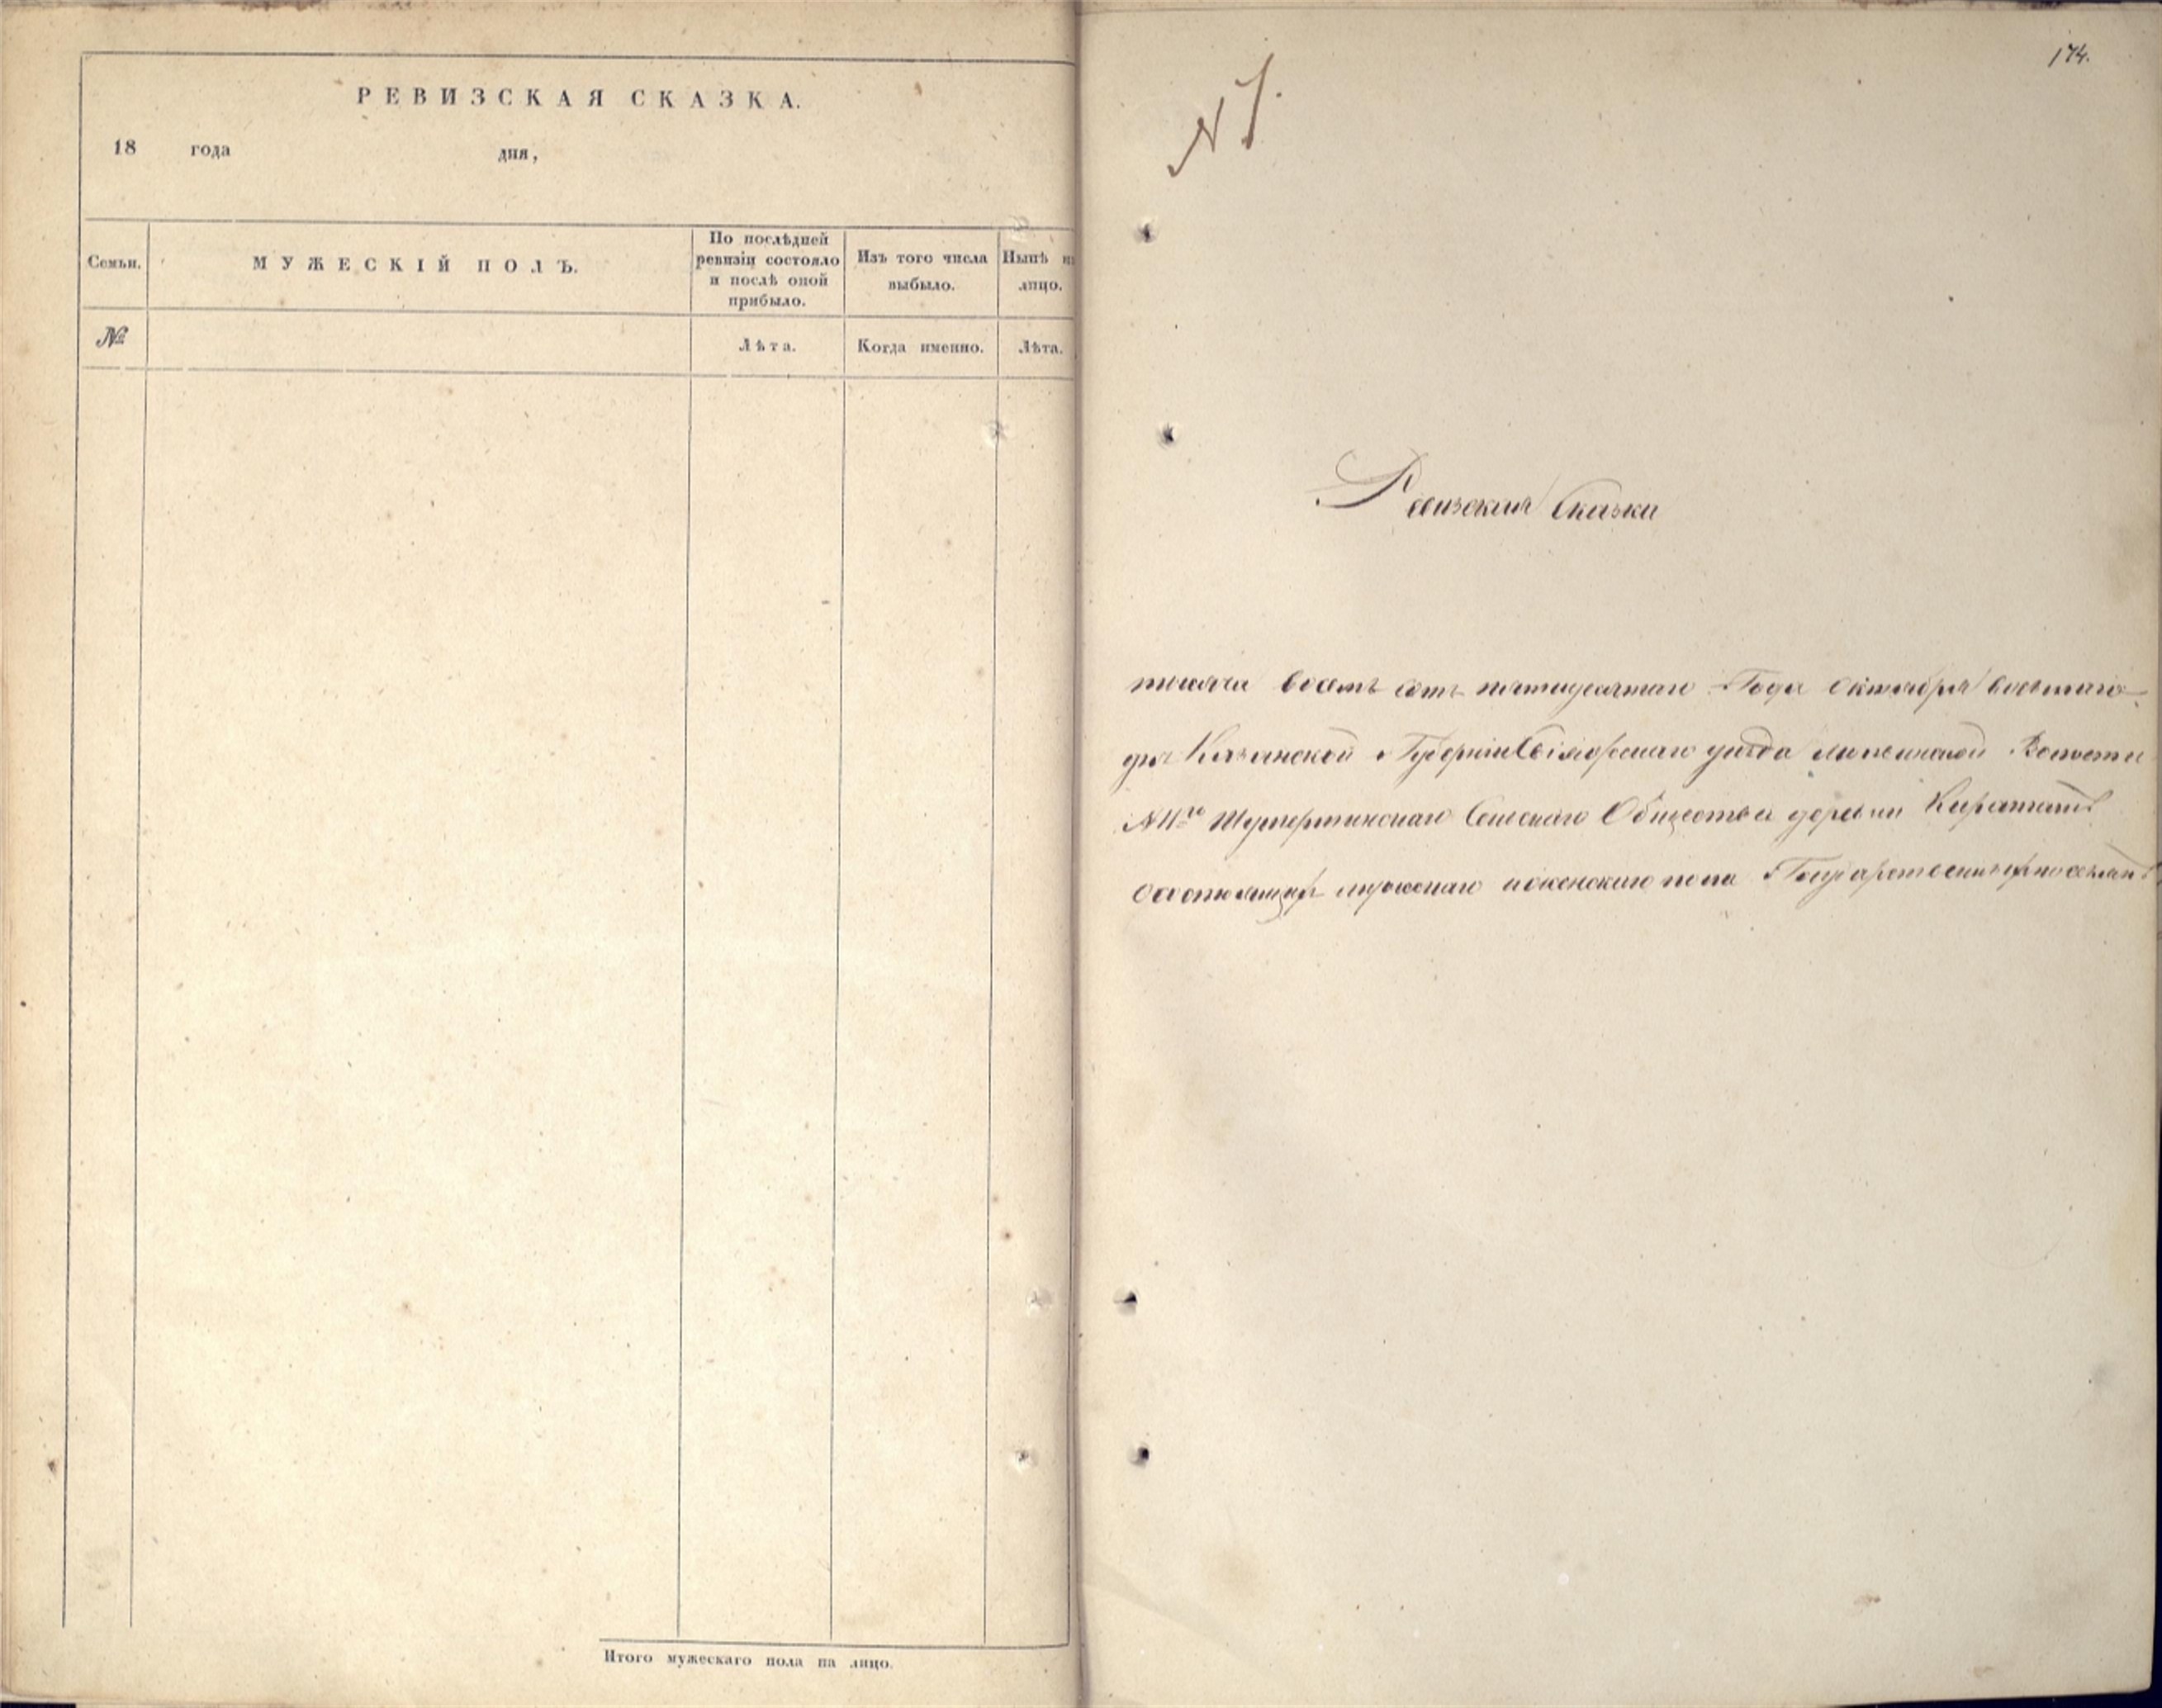 РЕВИЗСКАЯ СКАЗКА.
18 года дня,
Семьи.
МУЖЕСКІЙ ПОЛЪ.
По послѣдней
ревизіи состояло
и послѣ оной
прибыло.
Изъ того числа
выбыло.
Нынѣ на
лицо.
№
Лѣта.
Когда именно.
Лѣта.
Итого мужескаго пола на лицо.
174.
Ревизская Сказка
тысяча восемь сотъ пятидесятаго Года Октября
дня Казанской Губерніи уѣзда Волости
Сельскаго Общества деревни
состоящихъ мужескаго и женскаго пола